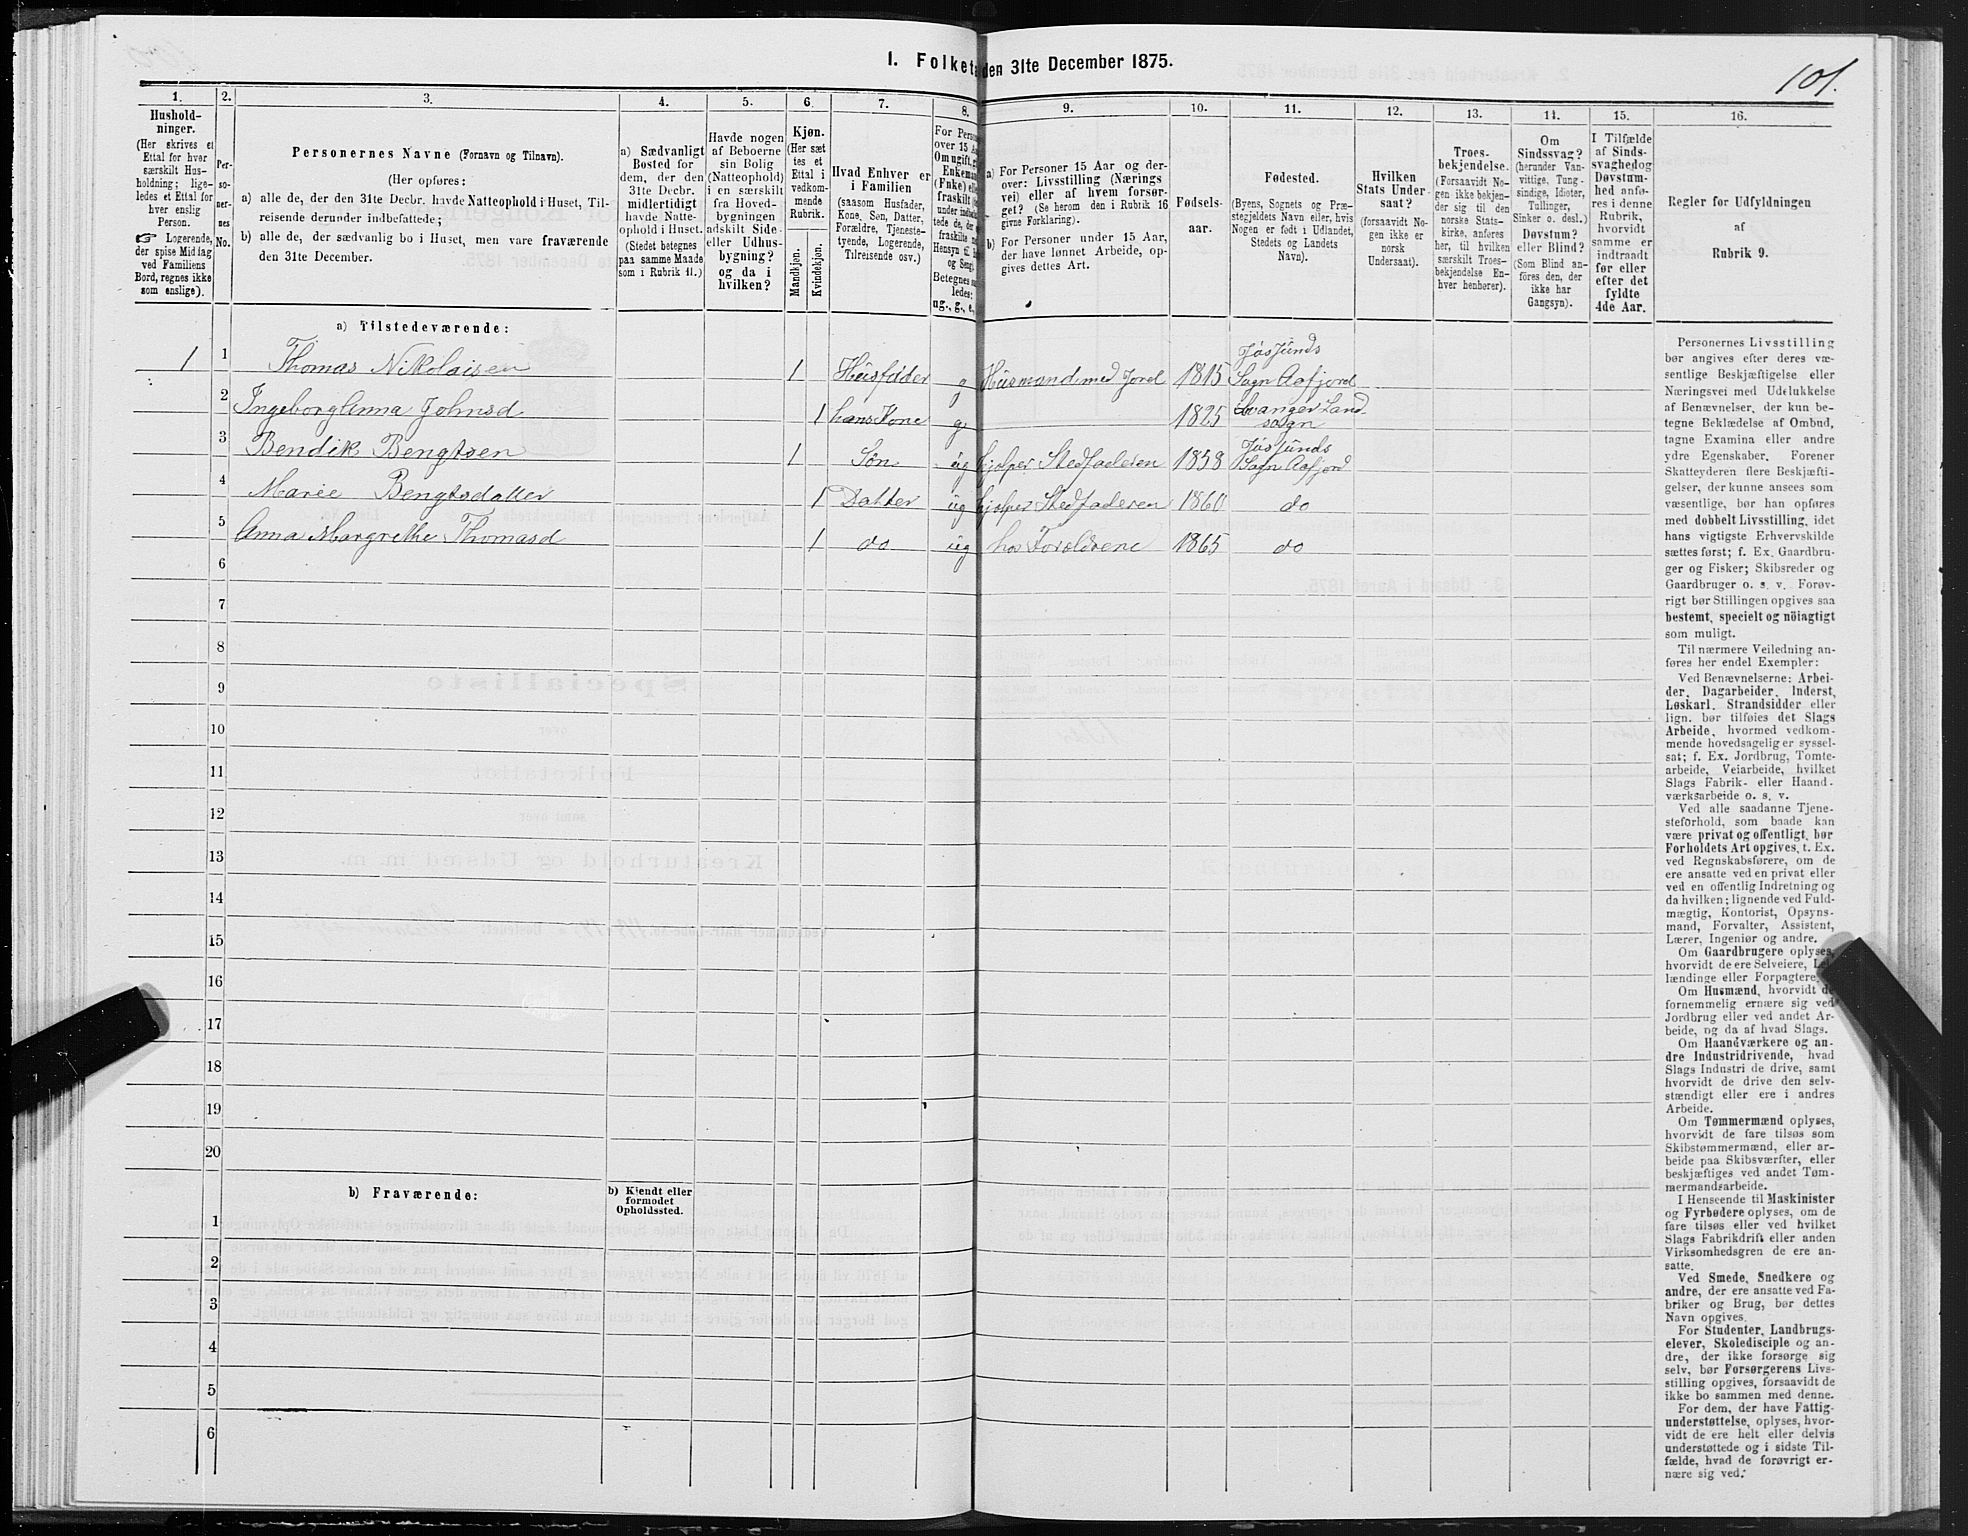 101.
1. Folketa den 31te December 1875.
1. 2. 3. 4. 5. 6. 7. 8. 9. 10. 11. 12. 13. 14. 15. 16.
Hushold-
ninger.
(Her skrives et
Ettal for hver
særskilt Hus-
holdning; lige-
ledes et Ettal for
hver enslig
Person.
☞ Logerende,
der spise Middag
ved Familiens
Bord, regnes ikke
som enslige).
Per-
so-
ner-
nes
No.
Personernes Navne (Fornavn og Tilnavn).
(Her opføres:
a) alle de, der den 31te Decbr. havde Natteophold i Huset, Til-
reisende derunder indbefattede;
b) alle de, der sædvanlig bo i Huset, men vare fraværende
den 31te December.
a) Sædvanligt
Bosted for
dem, der den
31te Decbr.
midlertidigt
havde Natte-
ophold i Huset.
(Stedet betegnes
paa samme Maade
som i Rubrik 11.)
Havde nogen
af Beboerne
sin Bolig
(Natteophold)
i en særskilt
fra Hoved-
bygningen
adskilt Side-
eller Udhus-
bygning?
og da i
hvilken?
Kjøn.
(Her sæt
tes et
Ettal i
vedkom-
mende
Rubrik.
Mandkjøn.
Kvindekjøn.
Hvad Enhver er
i Familien
(saasom Husfader,
Kone, Søn, Datter,
Forældre, Tjeneste-
tyende, Logerende,
Tilreisende osv.)
For Perso
over 15 A
Om ugift, g
Enkema
(Fnke) ell
fraskilt
under indb
tede de, der
fraskilte
Hensyn til
og Seng).
Betegnes s
ledes:
ug., g., e.,
a) For Personer 15 Aar og der-
over: Livsstilling (Nærings
vei) eller af hvem forsør-
get? (Se herom den i Rubrik 16
givne Forklaring).
b) For Personer under 15 Aar,
der have lønnet Arbeide, op-
gives dettes Art.
Fødsels-
aar.
Fødested.
(Byens, Sognets og Præ-
stegjeldets Navn eller, hvis
Nogen er født i Udlandet,
Stedets og Landets
Navn).
Hvilken
Stats Under-
saat?
(forsaavidt No-
gen ikke er
norsk
Undersaat).
Troes-
bekjendelse.
(Forsaavidt No-
gen ikke bekjen-
der sig til den
norske Stats-
kirke, anføres
her, til hvilken
særskilt Troes-
bekjendelse En-
hver henhører).
Om
Sindssvag?
(herunder Van-
vittige, Tung-
sindige, Idioter,
Tullinger,
Sinker o. desl.)
Døvstum?
eller Blind?
(Som Blind an-
føres den, der
ikke har
Gangsyn).
I Tilfælde
af Sinds-
svaghed og
Døvstum-
hed anfø-
res i denne
Rubrik,
hvorvidt
samme er
indtraadt
før eller
efter det
fyldte
4de Aar.
Regler for Udfyldningen
af
Rubrik 9.
a) Tilstedeværende:
1 1 Thomas Nikolaisen 1 Husfader g Husmand med Jord 1815 Jøssunds Sogn Aafjord
2 Ingeborg Anna Johnsd 1 hans Kone g 1825 Land-sogn
3 Bendik Bengtsen 1 Søn ug hjelper Stedfaderen 1858 Jøssunds Sogn Aafjord
4 Marie Bengtsdatter 1 Datter ug hjelper Stedfaderen 1860 do
5 Anna Margrethe Thomasd 1 do ug hos Forældrene 1865 do
6
7
8
9
10
11
12
13
14
15
16
17
18
19
20
b) Fraværende:
b) Kjendt eller
formodet
Opholdssted.
1
2
3
4
5
6
Personernes Livsstilling
bør angives efter deres væ-
sentlige Beskjæftigelse eller
Næringsvei med Udelukkelse
af Benævnelser, der kun be-
tegne Beklædelse af Ombud,
tagne Examina eller andre
ydre Egenskaber. Forener
Skatteyderen flere Beskjæfti-
gelser, der kunne ansees som
væsentlige, bør han opføres
med dobbelt Livsstilling, idet
hans vigtigste Erhvervskilde
sættes først; f. Ex. Gaardbru-
ger og Fisker; Skibsreder og
Gaardbruger o. s. v. Forøv-
rigt bør Stillingen opgives saa
bestemt, specielt og nöiagtigt
som muligt.
Til nærmere Veiledning an-
føres her endel Exempler:
Ved Benævnelserne: Arbei-
der, Dagarbeider, Inderst,
Løskarl, Strandsidder eller
lign. bør tilføies det Slags
Arbeide, hvormed vedkom-
mende hovedsagelig er syssel-
sat; f. Ex. Jordbrug, Tomte-
arbeide, Veiarbeide, hvilket
Slags Fabrik- eller Haand-
værksarbeide o. s. v.
Ved alle saadanne Tjene-
steforhold, som baade kan
være privat og offentligt, bør
Forholdets Art opgives, t. Ex.
ved Regnskabsførere, om de
ere ansatte ved en privat eller
ved en offentlig Indretning og
da hvilken; lignende ved Fuld-
mægtig, Kontorist, Opsyns-
mand, Forvalter, Assistent,
Lærer, Ingeniør og andre.
Om Gaardbrugere oplyses,
hvorvidt de ere Selveiere, Lei-
lændinge eller Forpagtere.
Om Husmænd, hvorvidt de
fornemmelig ernære sig ved
Jordbrug eller ved andet Ar-
beide, og da af hvad Slags.
Om Haandværkere og an-
dre Industridrivende, hvad
Slags Industri de drive, samt
hvorvidt de drive den selv-
stændigt eller ere i andres
Arbeide.
Om Tømmermænd oplyses,
hvorvidt de fare tilsøs som
Skibstømmermænd, eller ar-
beide paa Skibsværfter, eller
beskjæftiges ved andet Tøm-
mermandsarbeide.
I Henseende til Maskinister
og Fyrbødere oplyses, om de
fare tilsøs eller ved hvilket
Slags Fabrikdrift eller anden
Virksomhedsgren de ere an-
satte.
Ved Smede, Snedkere og
andre, der ere ansatte ved Fa-
briker og Brug, bør dettes
Navn opgives.
For Studenter, Landbrugs-
elever, Skoledisciple og an-
dre, der ikke forsørge sig
selv, bør Forsørgerens Livs-
stilling opgives, forsaavidt de
ikke bo sammen med denne.
For dem, der have Fattig-
understøttelse, oplyses, hvor-
vidt de ere helt eller delvis
understøttede og i sidste Til-
fælde, hvad de forøvrigt er-
nære sig ved.